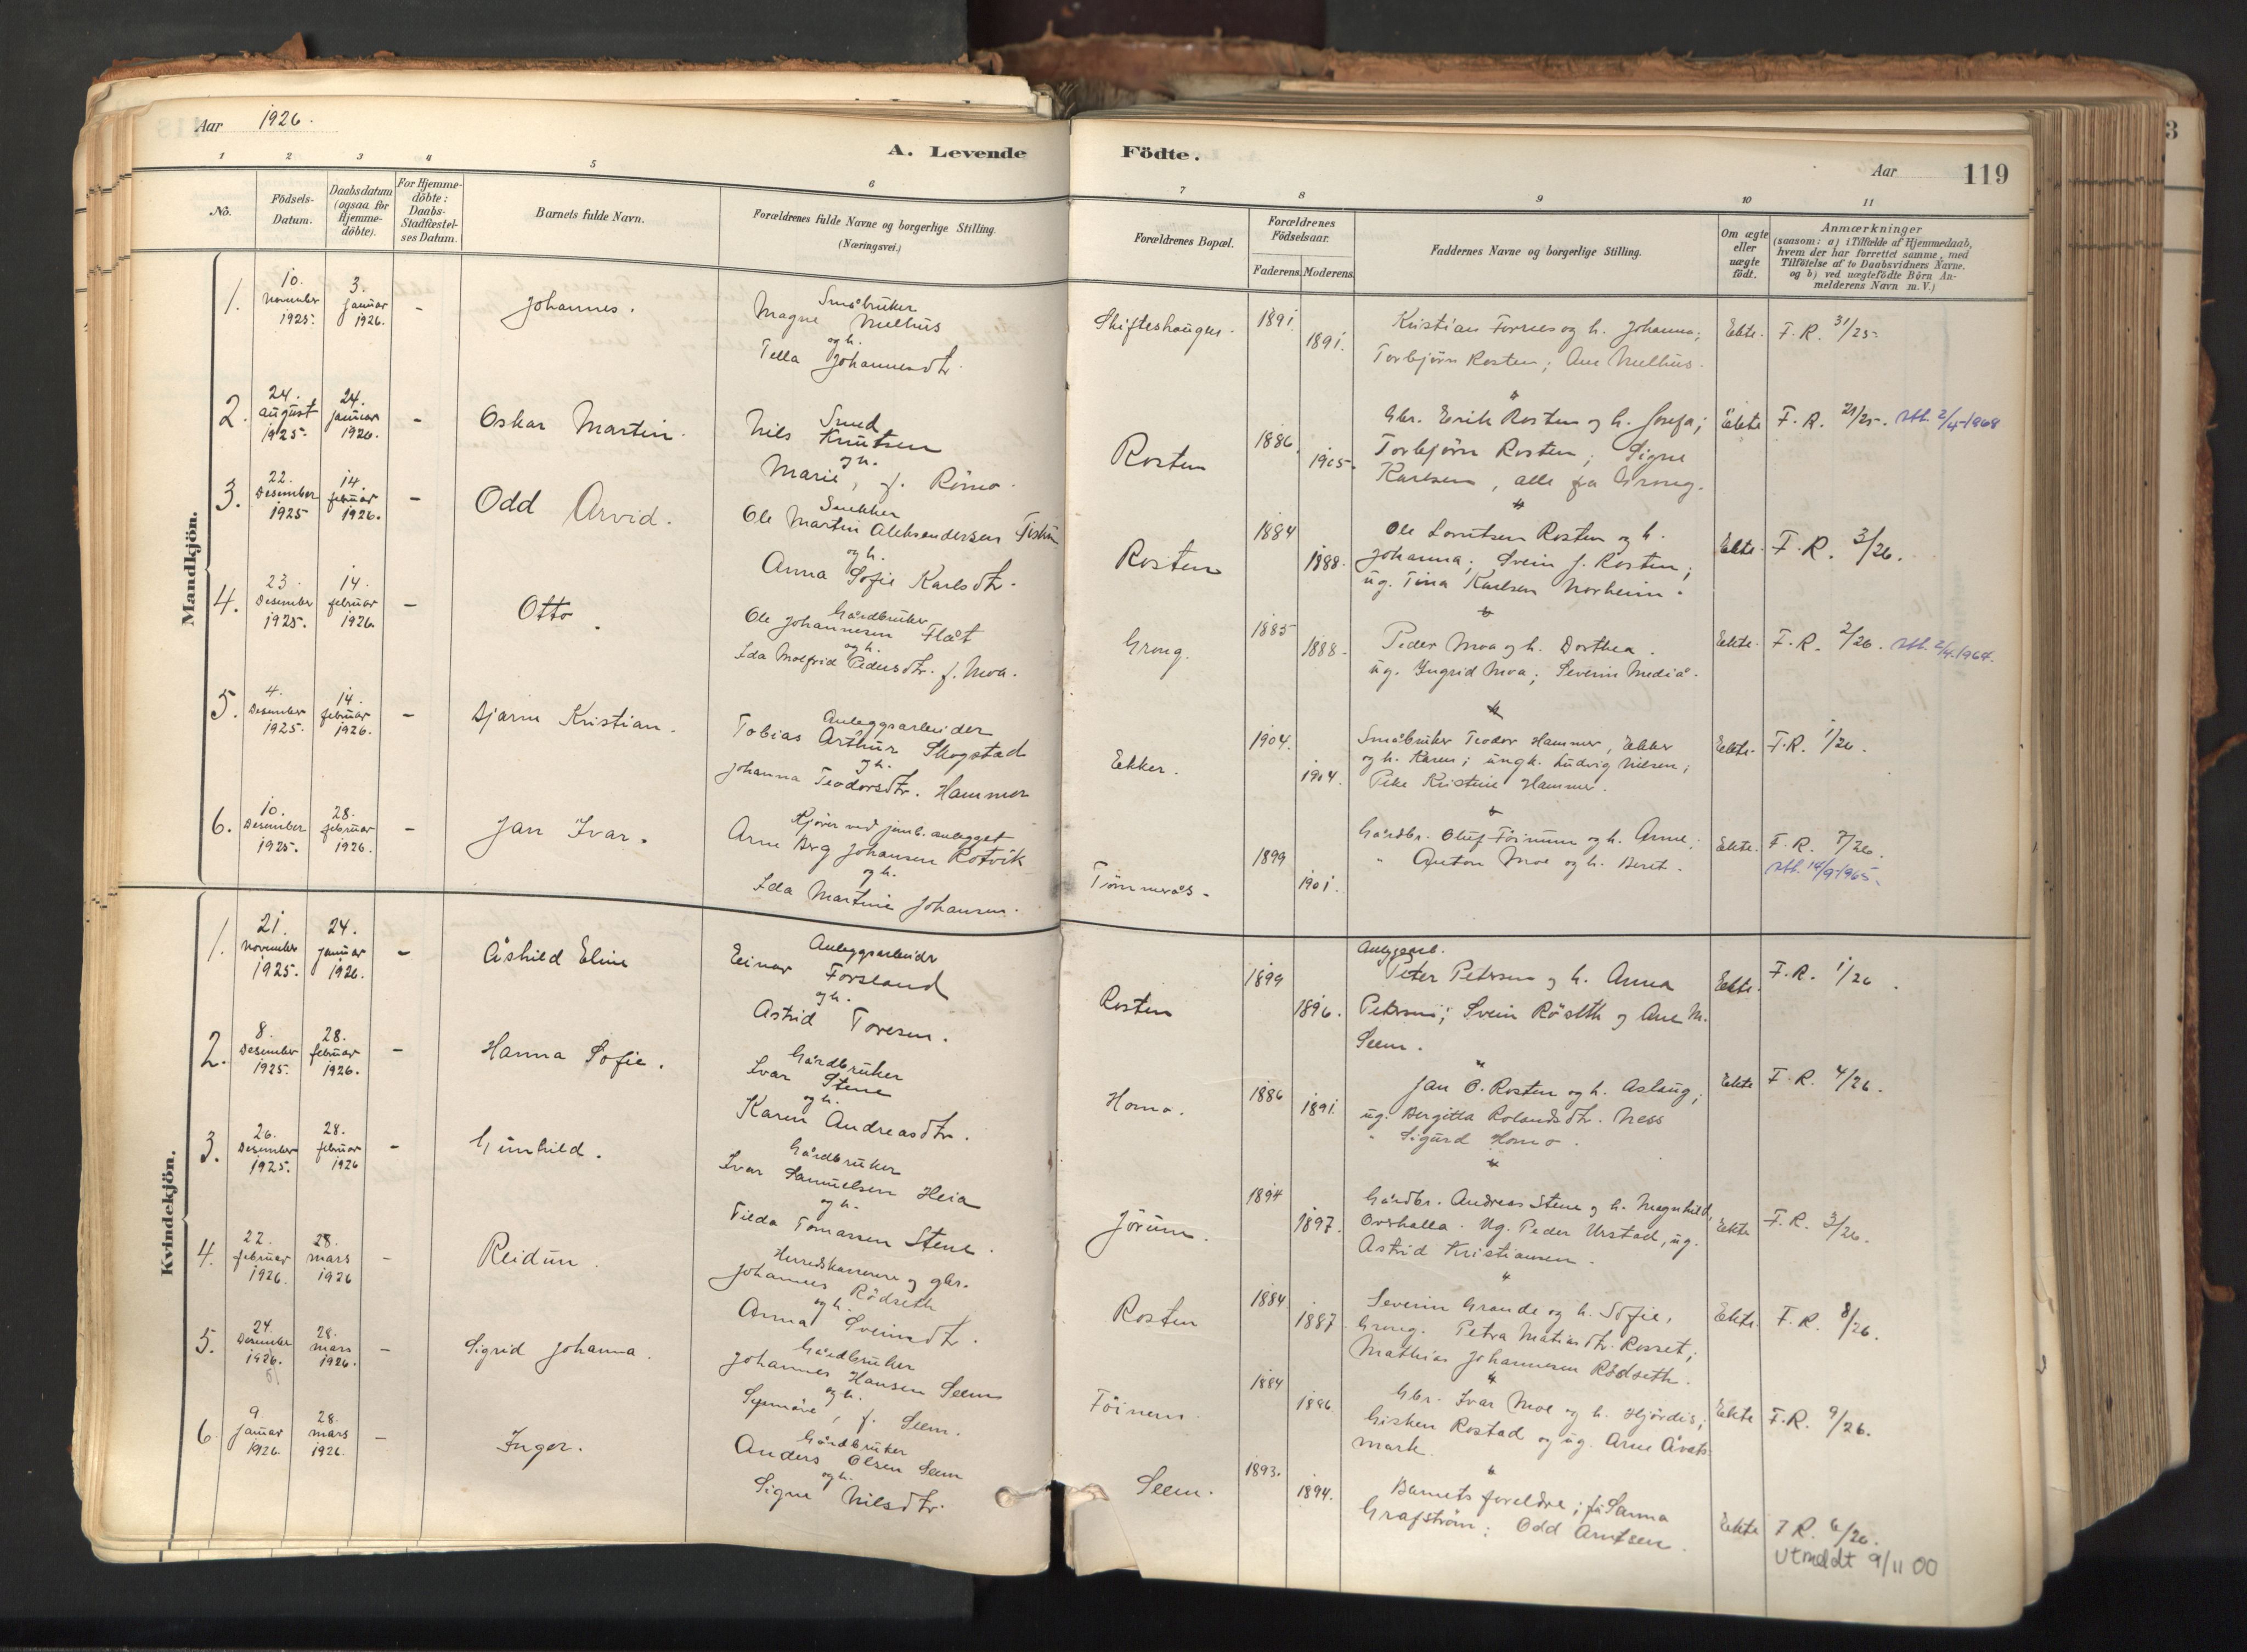 Aar 1926.
A. Levende Födte.
Aar 119
1 2 3 4 5 6 7 8 9 10 11
No.
Födsels-Datum.
Daabsdatum (ogsaa for Hjemme-döbte).
For Hjemme-döbte: Daabs-Stadfæstel-ses Datum.
Barnets fulde Navn.
Forældrenes fulde Navne og borgerlige Stilling.
(Næringsvei.)
Forældrenes Bopæl.
Forældrenes Födselsaar.
Faderens. Moderens.
Faddernes Navne og borgerlige Stilling.
Om ægte eller uægte födt.
Anmærkninger
(saasom: a) i Tilfælde af Hjemmedaab,
hvem der har forrettet samme, med
Tilföielse af to Daabsvidners Navne,
og b) ved uægtefödte Börn An-
melderens Navn m. V.)
Mandkjön.
1. 10. november 1925. 3. januar 1926. -
Johannes.
Småbruker
Magne Melhus
og h.
Tella Johannesdtr.
Skifteshaugen.
1891. 1891.
Kristian Fornes og h. Johanna;
Torbjørn Rosten; Ane Melhus.
Ekte. F. R. 31/25
2. 24. august 1925. 24. januar 1926. -
Oskar Martin.
Smed
Nils Knutsen
og h.
Marie, f. Rømo.
Rosten
1886. 1905.
Gbr. Erik Rosten og h. Josefa;
Torbjørn Rosten; Signe
Karlsen, alle fra Grong.
Ekte F. R. 21/25. Utl. 2/4-1968
3. 22. Desember 1925 14. februar 1926. -
Odd Arvid.
Snekker
Ole Martin Aleksandersen
og h.
Anna Sofie Karlsdtr.
Rosten
1884 1888.
Ole Lorntsen Rosten og h.
Johanna; Svein J. Rosten;
ug. Tina Karlsen Norheim.
Ekte. F. R. 3/26.
4. 23. Desember 1925. 14. februar 1926. -
Otto.
Gårdbruker
Ole Johannesen Flåt
og h.
Ida Molfrid Pedersdtr. f. Moa.
Grong.
1885 1888.
Peder Moa og h. Dorthea.
ug. Ingrid Moa; Severin Mediå.
Ekte. F. R. 2/26. Utl. 2/4.1964.
5. 4. Desember 1925. 14. februar 1926. -
Bjarne Kristian.
Anleggsarbeider
Tobias Arthur Skogstad
og h.
Johanna Teodorsdtr. Hammer
Ekker.
1904. 1904.
Småbruker Teodor Hammer, Ekker
og h. Karen; ungk. Ludvig Nilsen;
Pike Kristine Hammer.
Ekte. F. R. 1/26.
6. 10. Desember 1925. 28. februar 1926. -
Jan Ivar.
Kjører ved jernb. anlegget
Arne Berg Johansen Rotvik
og h.
Ida Martine Johansen.
Tømmerås.
1899 1901.
Gårdbr. Oluf Føinum og h. Anne;
" Anton Moe og h. Beret.
Ekte. F. R. 7/26.
Utl. 14/9-1965.
Kvindekjön.
1. 21. november 1925. 24. januar 1926. -
Åshild Eline
Anleggsarbeider
Einar Forsland
og h.
Astrid Toresen.
Rosten
1899 1896.
Anleggsarb.
Peter Petersen og h. Anna
Petersen; Svein Rôseth og Ane M.
Seem.
Ekte. F. R. 1/26.
2. 8. Desember 1925. 28. februar 1926. -
Hanna Sofie.
Gårdbruker
Ivar Stene
og h.
Karen Andreasdtr.
Homo.
1886 1891.
Jan O. Rosten og h. Aslaug;
ug. Bergitta Rolandsdtr. Ness
" Sigurd Homo.
Ekte F. R. 4/26.
3. 26. Desember 1925. 28. februar 1926 -
Gunhild.
Gårdbruker
Ivar Samuelsen Heia
og h.
Tilda Tomassen Stene.
Jørum.
1894 1897.
Gårdbr. Andreas Stene og h. Magnhild,
Overhalla. Ug. Peder Urstad, ug.
Astrid Kristiansen.
Ekte F. R. 3/26.
4. 22. februar 1926. 28. mars 1926 -
Reidun.
Herredskasserer og gbr.
Johannes Rödseth
og h.
Anna Sveinsdtr.
Rosten
1884 1887
Severin Grande og h. Sofie,
Grong. Petra Matiasdtr. Rosset;
Mathias Johannesen Rødseth.
Ekte. F. R. 8/26.
5. 24. Desember 1926. 5/ 28. mars 1926. -
Sigrid Johanna.
Gårdbruker
Johannes Hansen Seem
og h.
Synnøve, f. Seem.
Föinem.
1884 1886.
Gbr. Ivar Moe og h. Hjørdis;
Gisken Rostad og ug. Arne Åvats-
mark.
Ekte F. R. 9/26.
6. 9. januar 1926. 28. mars 1926. -
Inger.
Gårdbruker
Anders Olsen Seem
og h.
Signe Nilsdtr.
Seem.
1893. 1894.
Barnets foreldre; fr. Sanna
Grafström; Odd Arntsen.
Ekte F. R. 6/26.
Utmeldt 9/11 00